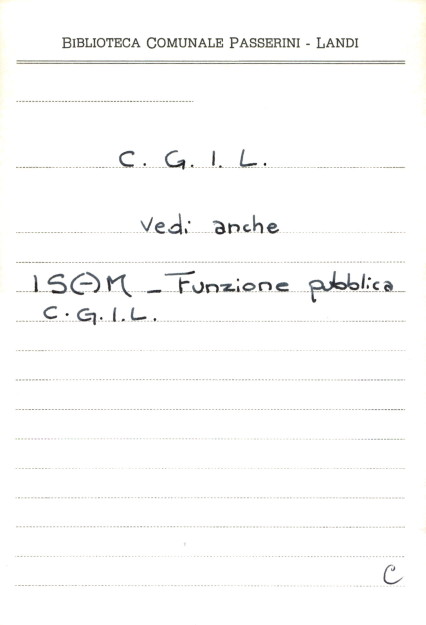 BIBLIOTECA COMUNALE PASSERINI - LANDI
C. G. I. L.
Vedi anche
_ Funzione pubblica
C.G.I.L.
C